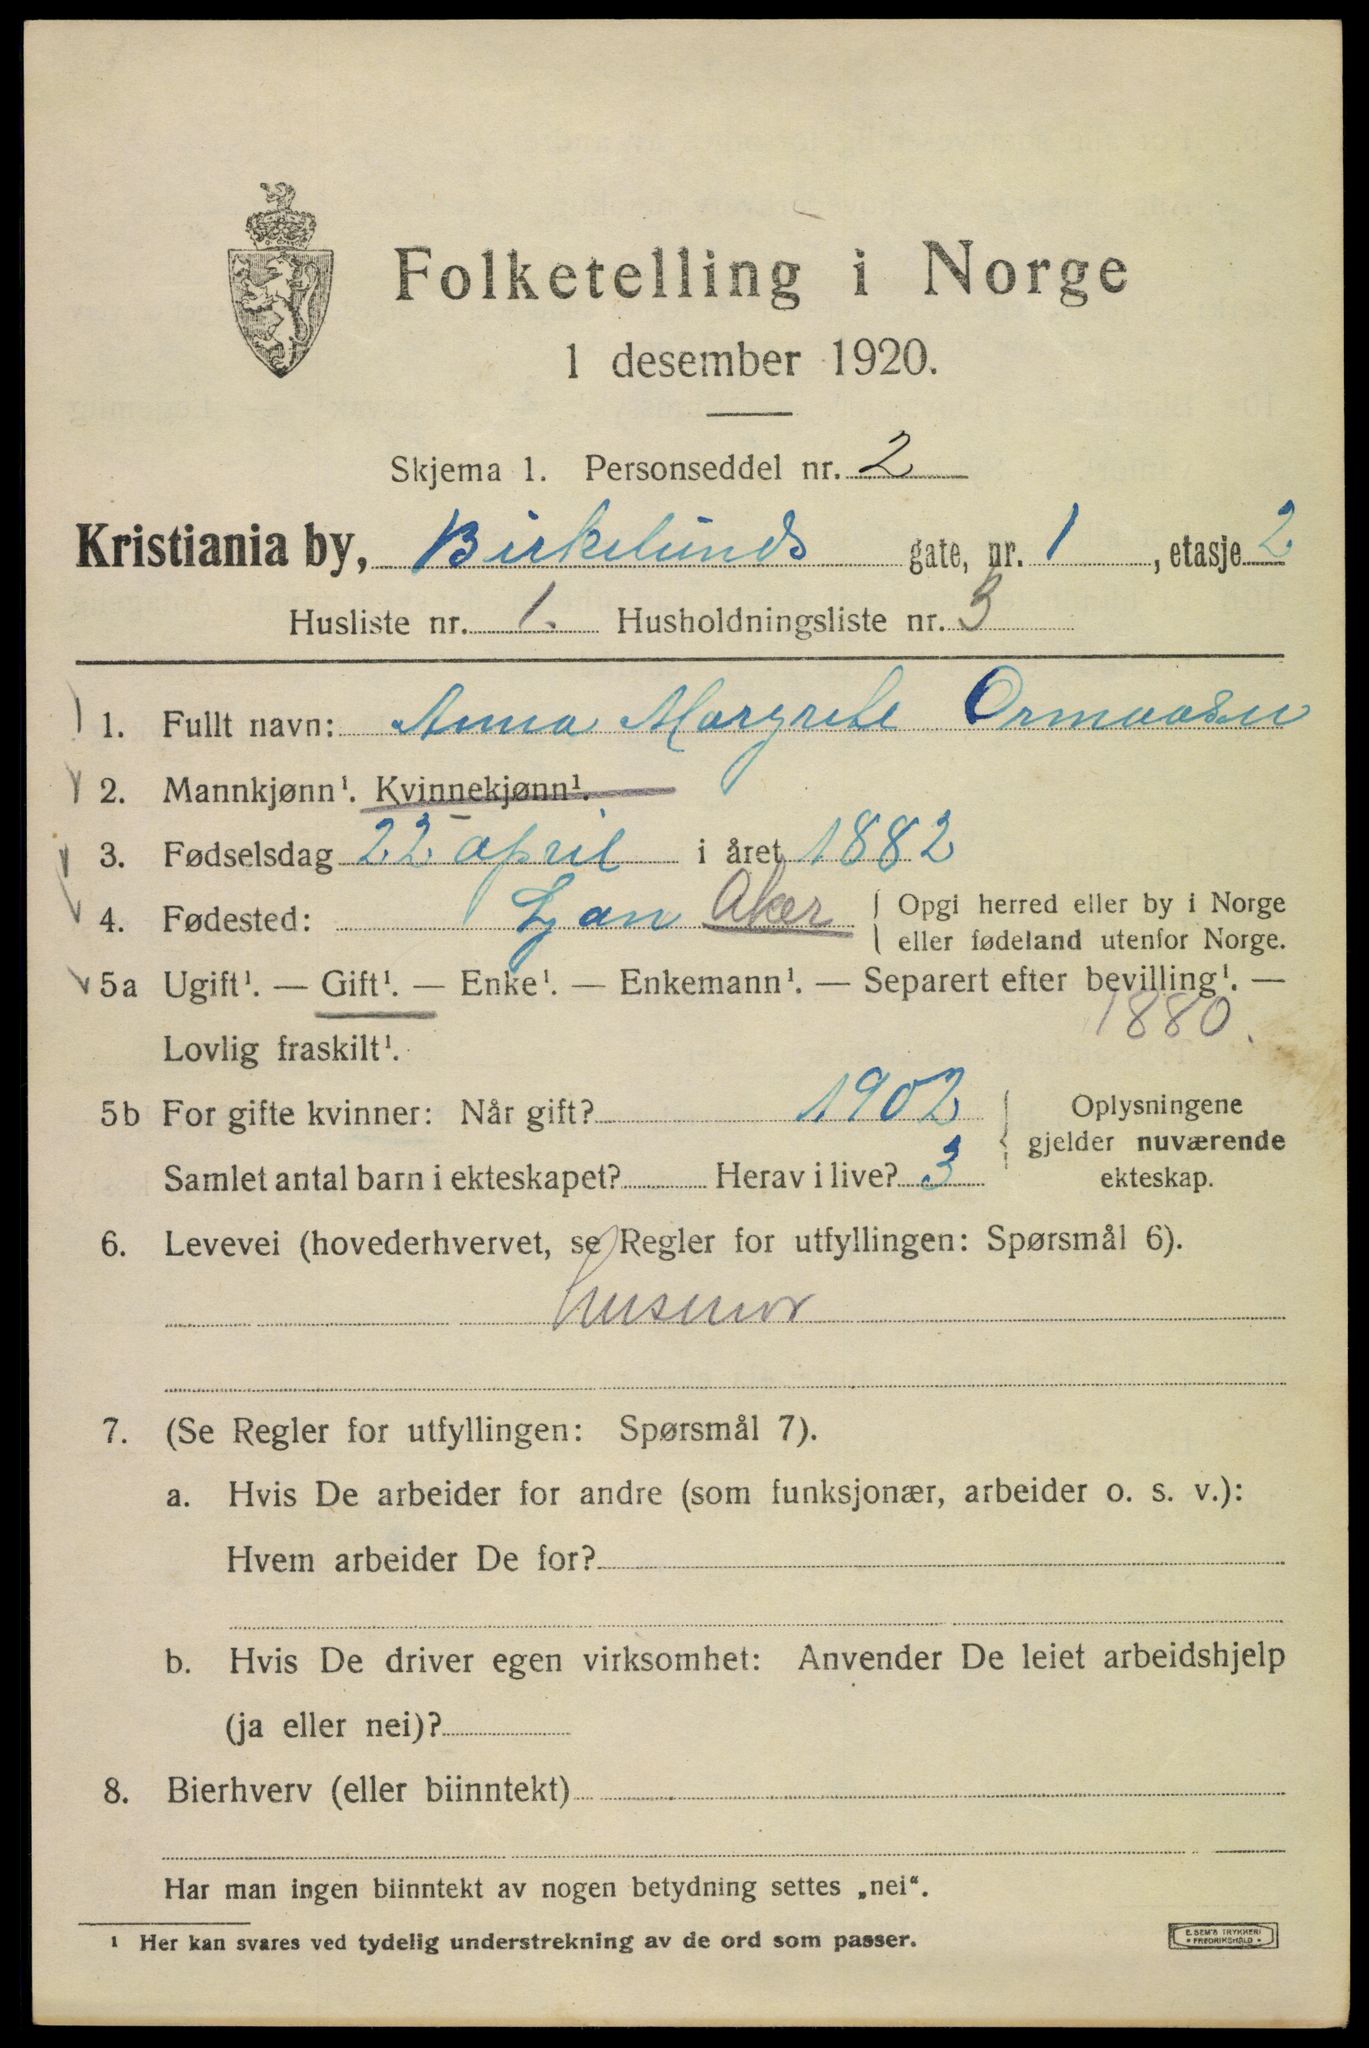 Folketelling i Norge
1 desember 1920.
Skjema 1. Personseddel nr. 2
Kristiania by, Birkelunds gate, nr. 1, etasje 2.
Husliste nr. 1. Husholdningsliste nr. 3
1. Fullt navn: Anna Margrete Ormaasen
2. Mannkjønn¹. Kvinnekjønn¹.
3. Fødselsdag 22. april i året 1882
4. Fødested: Ljan Aker Opgi herred eller by i Norge
eller fødeland utenfor Norge.
5a Ugift¹. — Gift¹. — Enke¹. — Enkemann¹. — Separert efter bevilling¹. —
1880.
Lovlig fraskilt¹.
5b For gifte kvinner: Når gift? 1902 Oplysningene
gjelder nuværende
Samlet antal barn i ekteskapet? Herav i live? 3 ekteskap.
6. Levevei (hovederhvervet, se Regler for utfyllingen: Spørsmål 6).
husmor
7. (Se Regler for utfyllingen: Spørsmål 7).
a. Hvis De arbeider for andre (som funksjonær, arbeider o. s. v.):
Hvem arbeider De for?
b. Hvis De driver egen virksomhet: Anvender De leiet arbeidshjelp
(ja eller nei)?
8. Bierhverv (eller biinntekt)
Har man ingen biinntekt av nogen betydning settes „nei“.
¹ Her kan svares ved tydelig understrekning av de ord som passer.
E. SEM'S TRYKKERI
• FREDRIKSHALD •